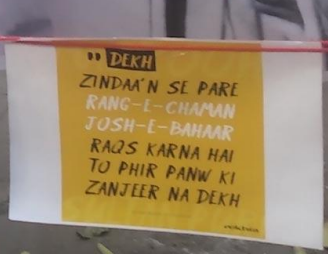 " DEKH
ZINDAA'N SE PARE
RANG-E-CHAMAN
JOSH-E-BAHAAR
RAQS KARNA HAI
TO PHIR PANW KI
ZANJEER NA DEKH